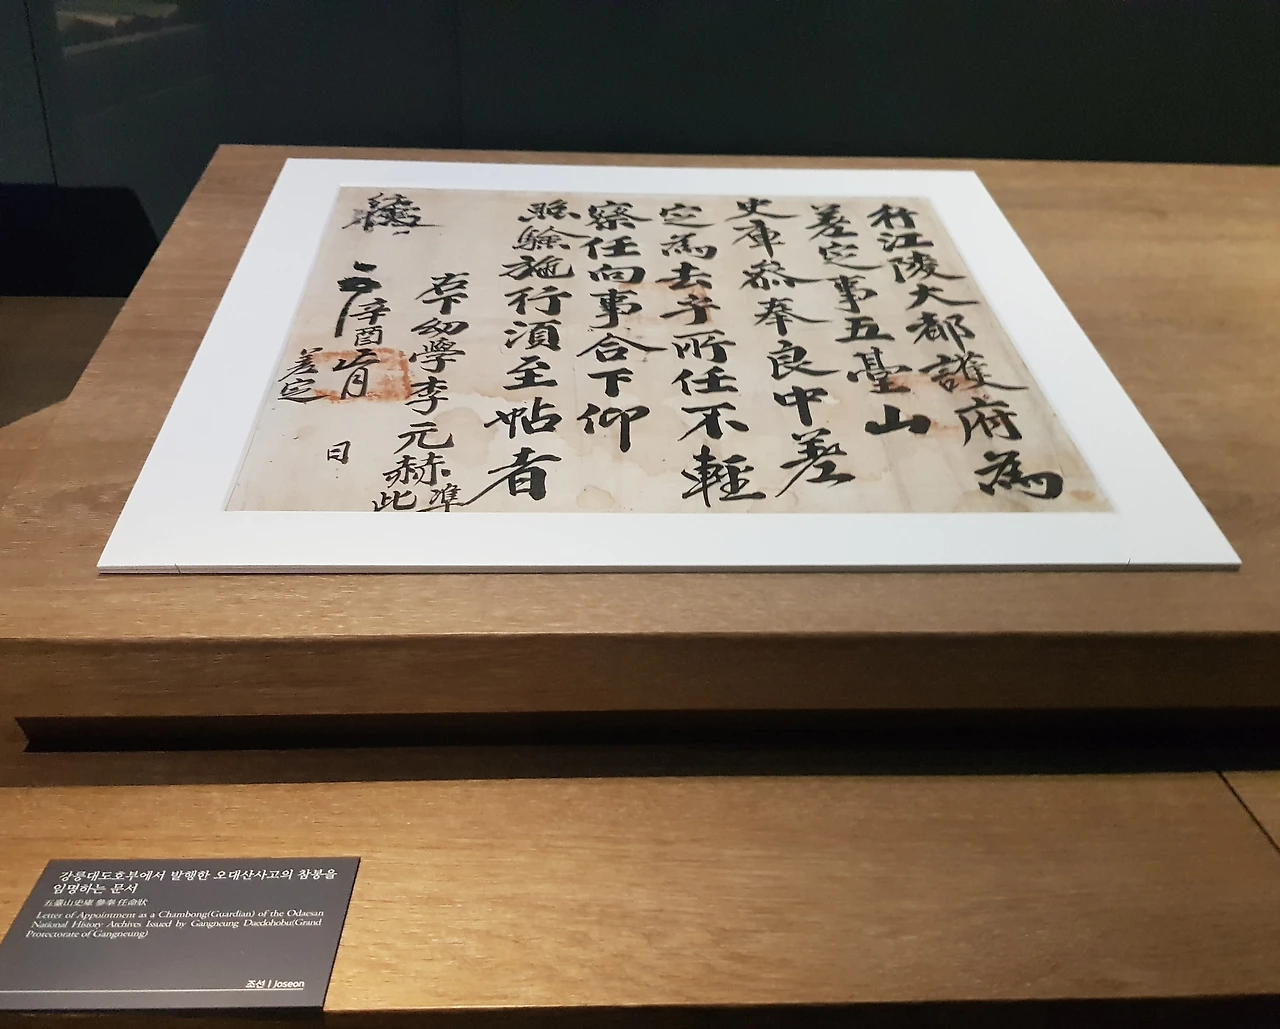 行江陵大都護府爲
差定事五臺山
史庫叅奉良中差
定爲去乎所任不輕
察任向事合下仰
照驗施行須至帖者
右下幼學李元赫準此
辛酉正月 日
差定
강릉대도호부에서 발행한 오대산사고의 참봉을
임명하는 문서
五臺山史庫 參奉 任命狀
Letter of Appointment as a Chambong(Guardian) of the Odaesan
National History Archives Issued by Gangneung Daedohobu(Grand
Protectorate of Gangneung)
조선 | Joseon